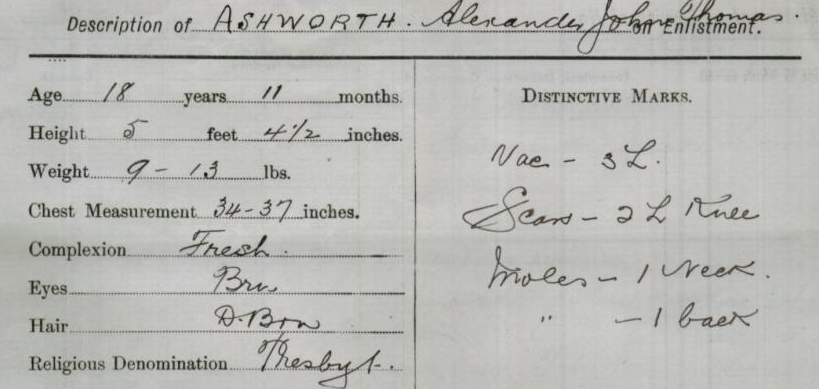 Description of ASHWORTH. Alexander John Thomas. on Enlistment.
Age 18 years 11 months.
Height 5 feet 4 1/2 inches.
Weight 9 - 13 lbs.
Chest Measurement 34-37 inches.
Complexion Fresh.
Eyes Brn
Hair D. Brn
Religious Denomination Presbyt.
DISTINCTIVE MARKS.
Vac - 3 L.
Scars - 2 L Knee
Moles - 1 Neck.
" - 1 back